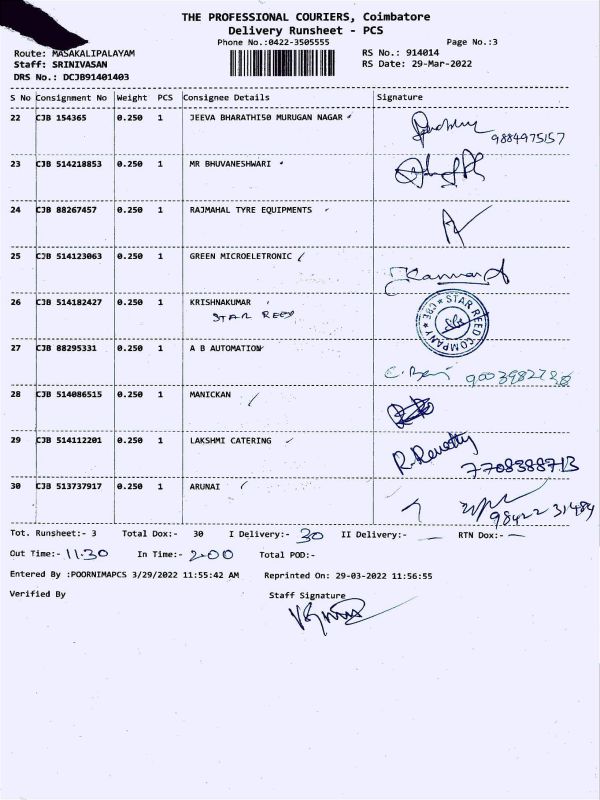 THE PROFESSIONAL COURIERS, Coimbatore
Delivery Runsheet - PCS
Phone No.:0422-3505555 Page No.:3
Route: MASAKALIPALAYAM RS No.: 914014
Staff: SRINIVASAN RS Date: 29-Mar-2022
DRS No.: DCJB91401403
S No Consignment No Weight PCS Consignee Details Signature
22 CJB 154365 0.250 1 JEEVA BHARATHI50 MURUGAN NAGAR
9884975157
23 CJB 514218853 0.250 1 MR BHUVANESHWARI
24 CJB 88267457 0.250 1 RAJMAHAL TYRE EQUIPMENTS
25 CJB 514123063 0.250 1 GREEN MICROELETRONIC
26 CJB 514182427 0.250 1 KRISHNAKUMAR
STAR REED
STAR REED COMPANY CBE
27 CJB 88295331 0.250 1 A B AUTOMATION
28 CJB 514086515 0.250 1 MANICKAN
29 CJB 514112201 0.250 1 LAKSHMI CATERING
R. Revathy
7708388713
30 CJB 513737917 0.250 1 ARUNAI
98422 31484
Tot. Runsheet:- 3 Total Dox:- 30 I Delivery:- 30 II Delivery:- — RTN Dox:- —
Out Time:- 11.30 In Time:- 2.00 Total POD:-
Entered By :POORNIMAPCS 3/29/2022 11:55:42 AM Reprinted On: 29-03-2022 11:56:55
Verified By Staff Signature